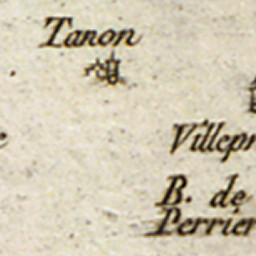 Tanon
Villepr
B. de
Perrier